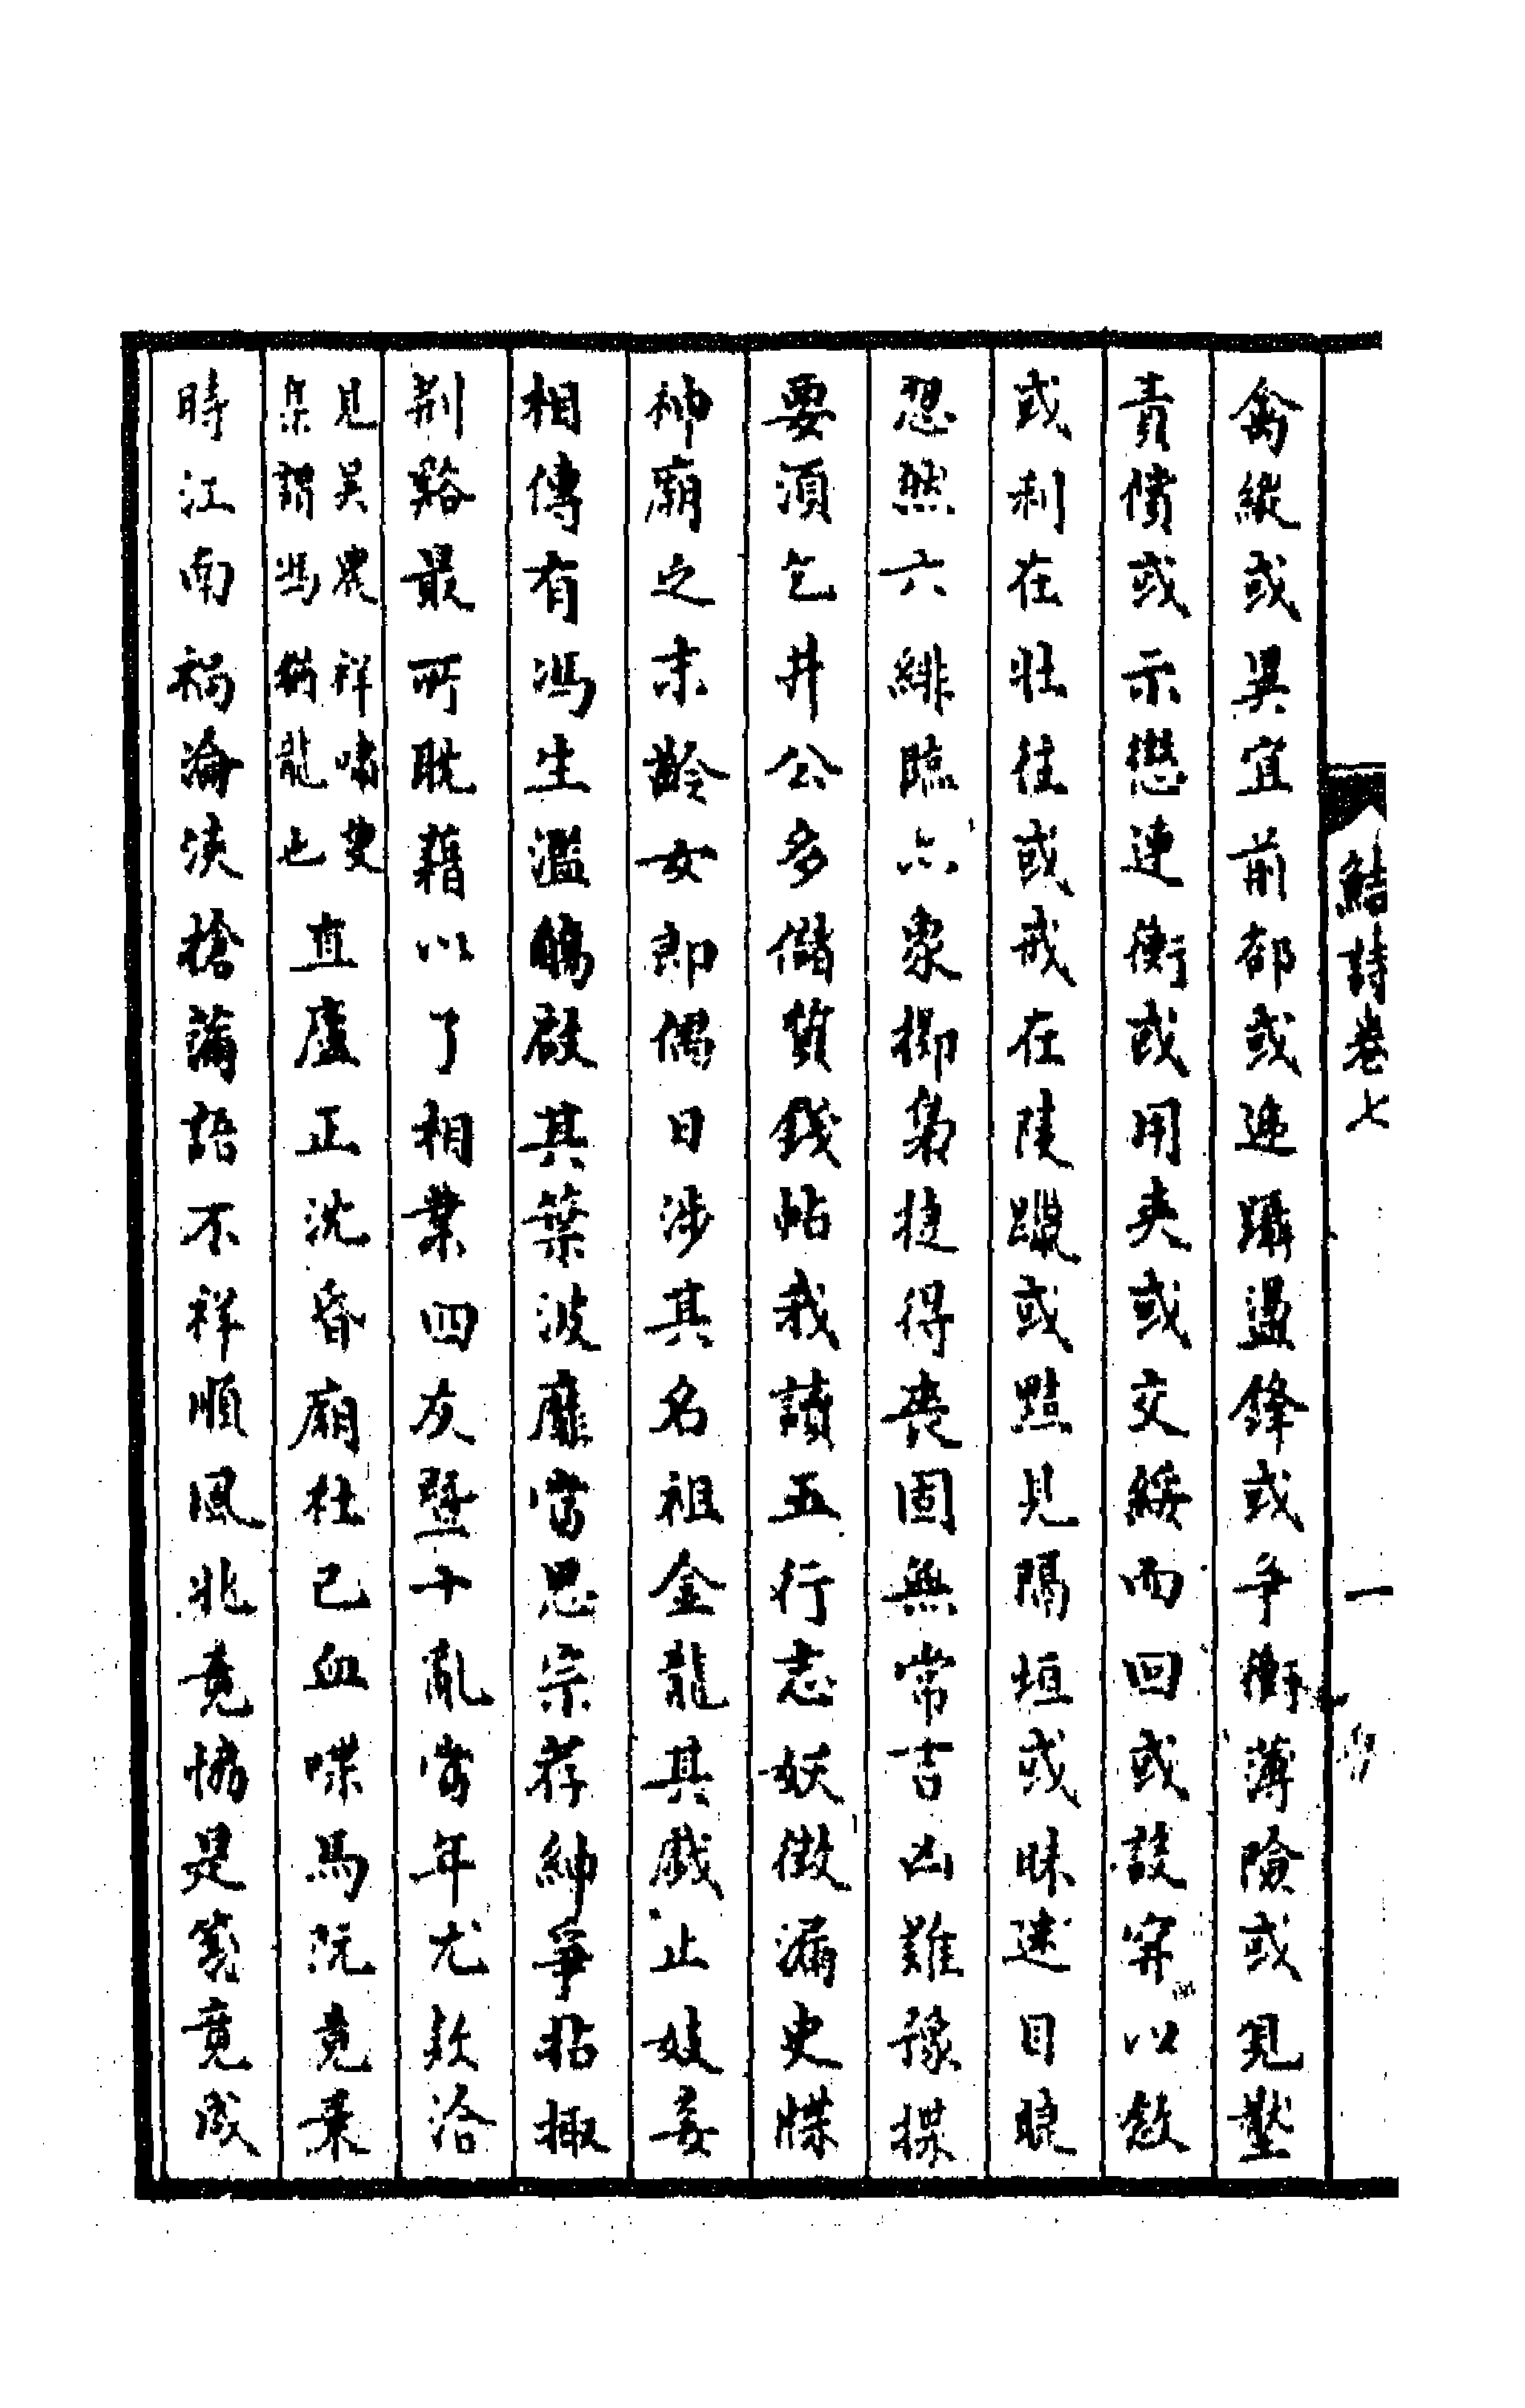 禽縱或異宜前郤或迭躡盪鋒或爭衡薄險或見塹
責償或示懲連衡或用夾或交綏而回或設穽以敓
或利在壯往或戒在陵躐或黠見隔垣或昧迷目睫
忽然六緋臨六眾抑梟捷得喪固無常吉凶難豫揲
要須乞井公多儲貨錢帖我讀五行志妖徵漏史牒
神廟之末齡女即偶日涉其名祖金龍其戲止妓妾
相傳有馮生濫觴啟其葉波靡當思宗荐紳爭拈掫
荆谿最所耽藉以了相業四友暨十亂當年尤款洽
見吳農祥嘯叟
集謂馮猶龍也
直廬正沈昏廟社已血喋馬阮竟棄
時江南禍淪浹搶蒲語不祥順風兆竟恊是氣竟成
鮚詩卷七
一